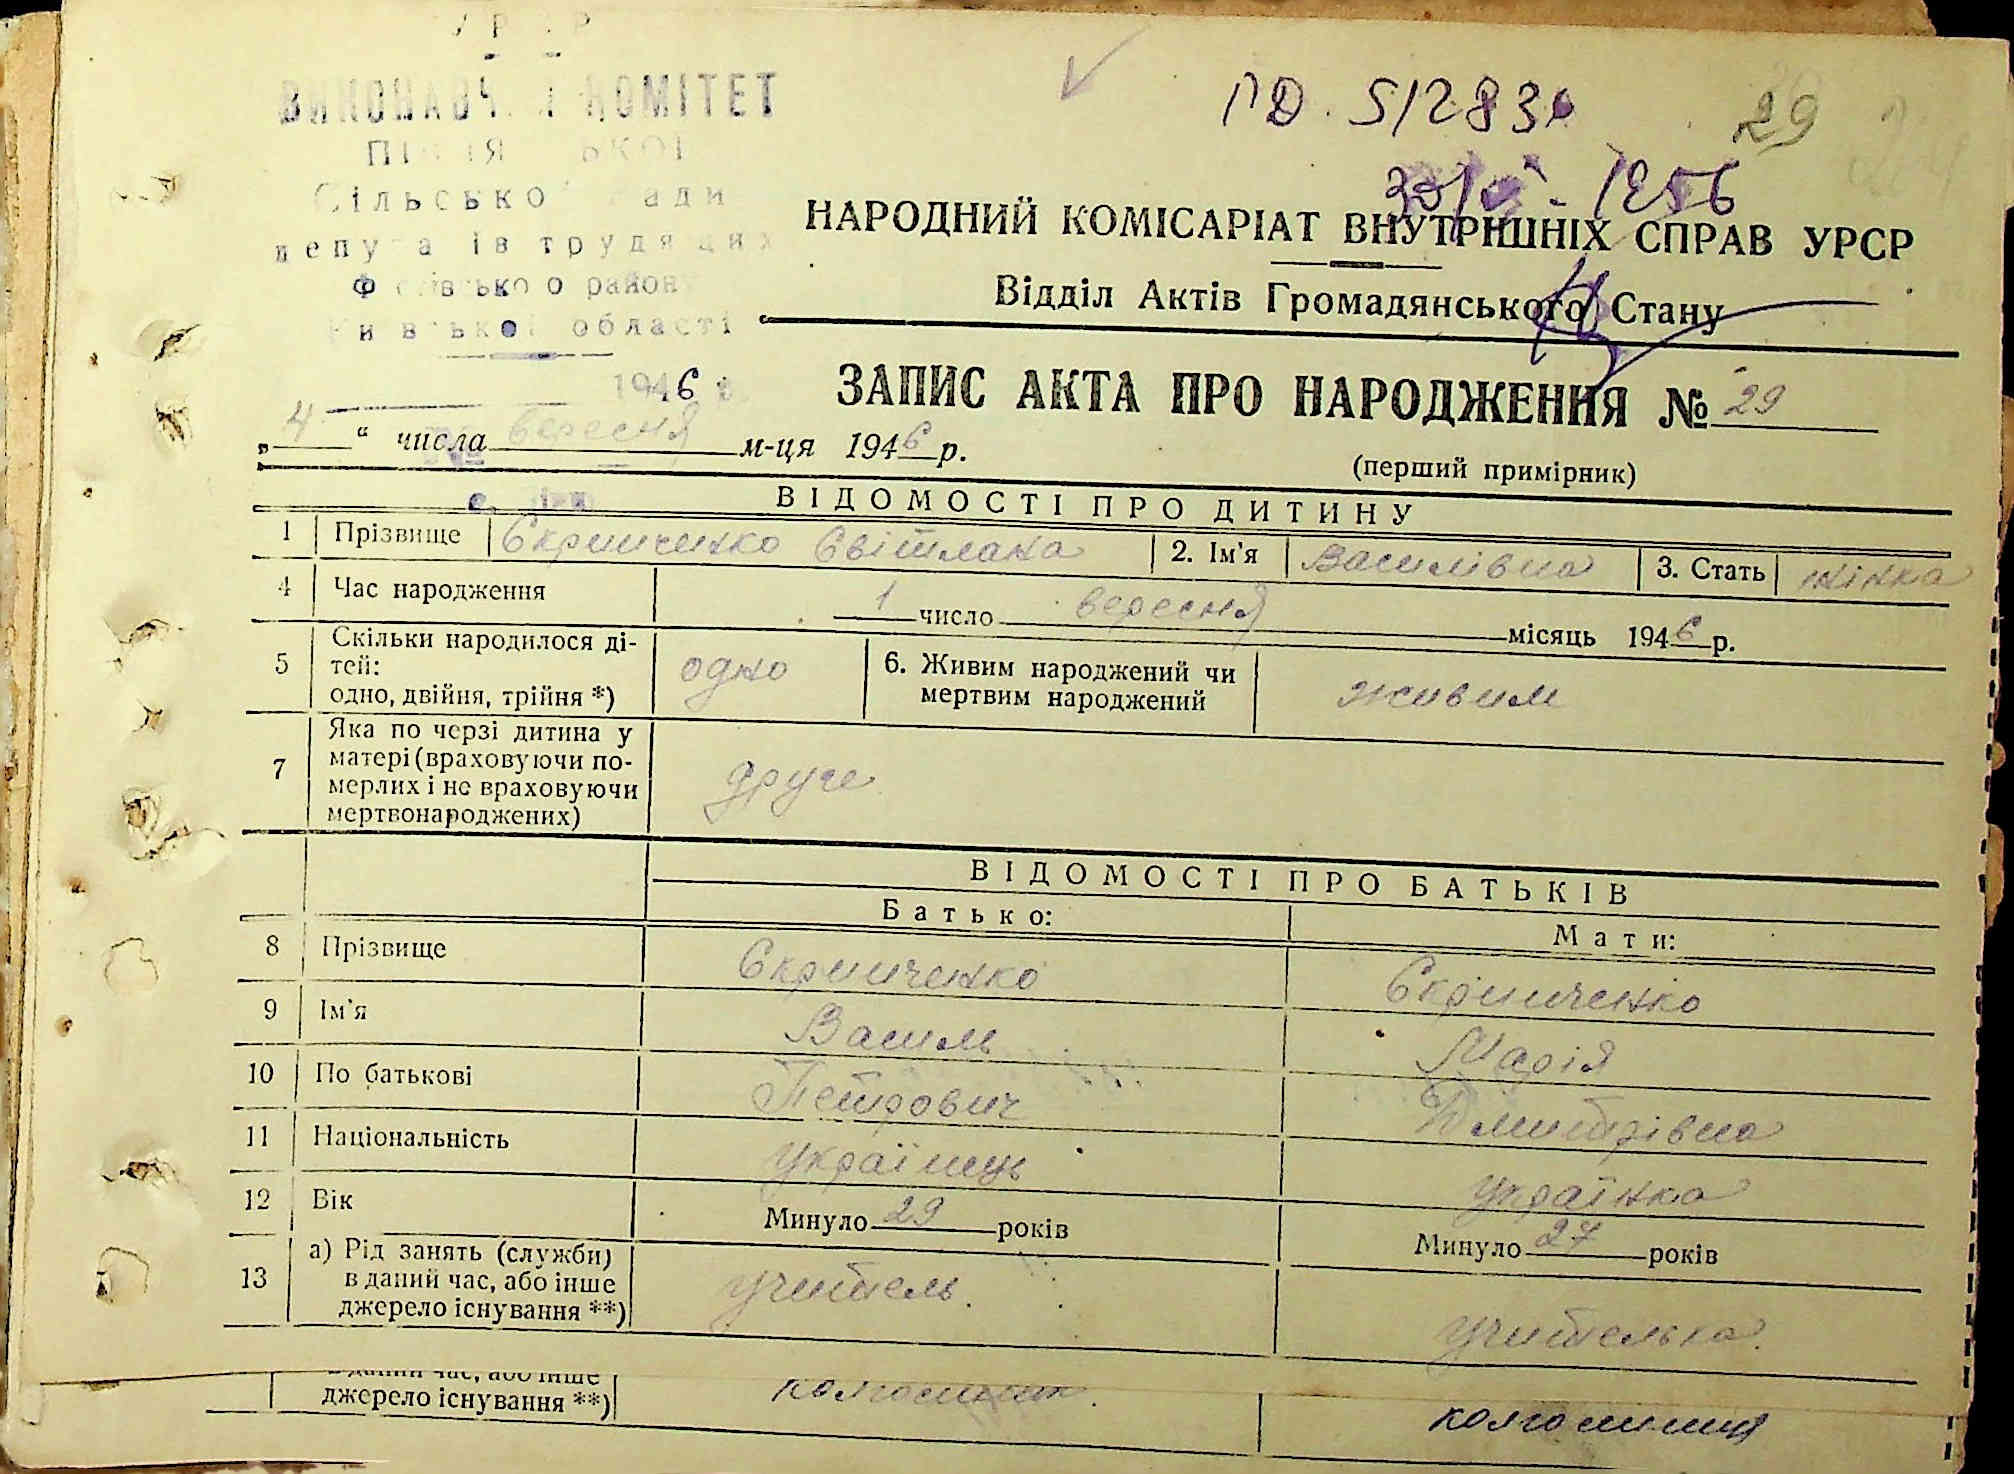 УРСР
ВИКОНАВЧИЙ КОМІТЕТ
Сільської Ради
депутатів трудящих
району
Київської області
1946 р.
ПД. 512830
29
1956
НАРОДНИЙ КОМІСАРІАТ ВНУТРІШНІХ СПРАВ УРСР
Відділ Актів Громадянського Стану
ЗАПИС АКТА ПРО НАРОДЖЕННЯ № 29
„4“ числа вересня м-ця 1946 р.
(перший примірник)
ВІДОМОСТІ ПРО ДИТИНУ
1 Прізвище Скрипченко Світлана 2. Ім'я Василівна 3. Стать жінка
4 Час народження 1 число вересня місяць 1946 р.
5 Скільки народилося ді-
тей:
одно, двійня, трійня *) одно 6. Живим народжений чи
мертвим народжений живим
7 Яка по черзі дитина у
матері (враховуючи по-
мерлих і не враховуючи
мертвонароджених) друге
ВІДОМОСТІ ПРО БАТЬКІВ
Батько: Мати:
8 Прізвище Скрипченко Скрипченко
9 Ім'я Василь Марія
10 По батькові Петрович Дмитрівна
11 Національність українець українка
12 Вік Минуло 29 років Минуло 27 років
13 а) Рід занять (служби)
в даний час, або інше
джерело існування **) учитель учителька
в даний час, або інше
джерело існування **) колгоспник колгоспниця